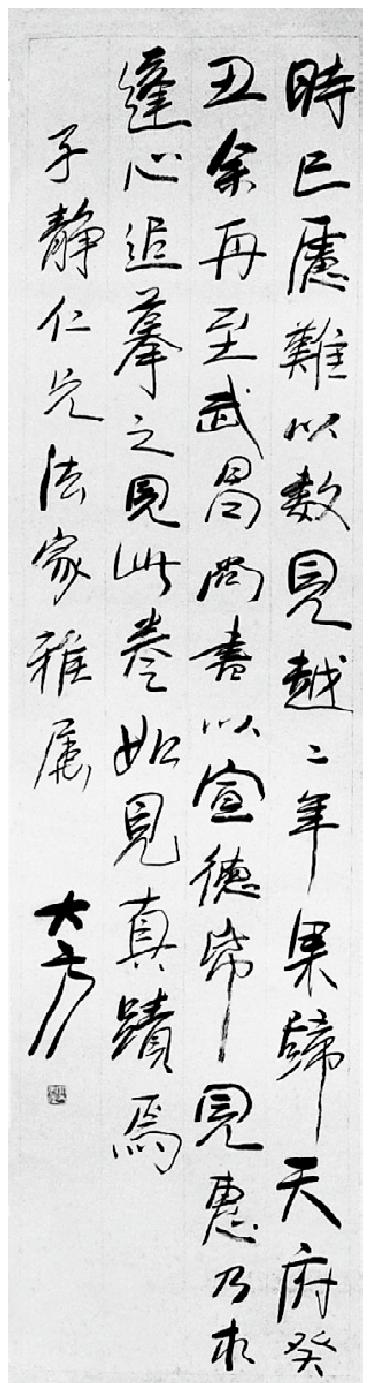 時已慮難以數見越二年果歸天府癸
丑余再至武昌尚書以宣德紙見惠乃求
蓬心追摹之見此卷如見真蹟焉
子靜仁兄法家雅属
大方